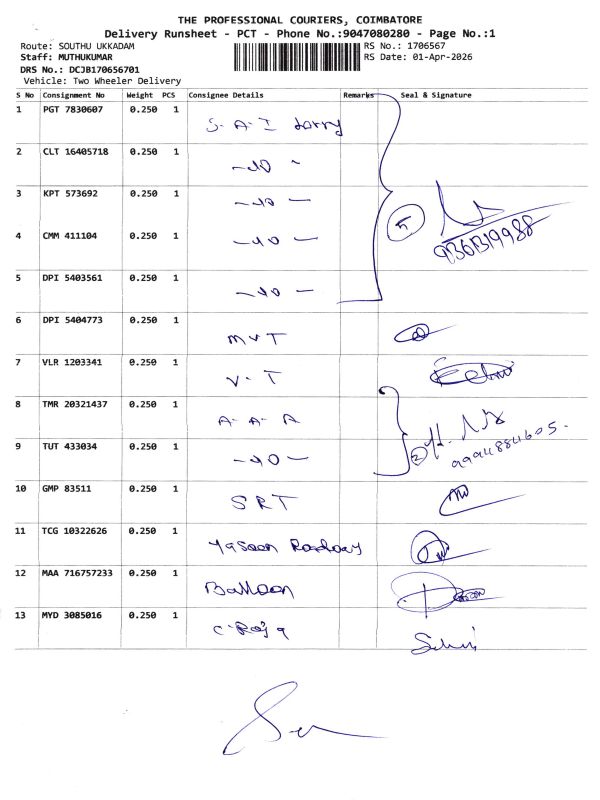 THE PROFESSIONAL COURIERS, COIMBATORE
Delivery Runsheet - PCT - Phone No.:9047080280 - Page No.:1
Route: SOUTHU UKKADAM
RS No.: 1706567
Staff: MUTHUKUMAR
RS Date: 01-Apr-2026
DRS No.: DCJB170656701
Vehicle: Two Wheeler Delivery
S No Consignment No Weight PCS Consignee Details Remarks Seal & Signature
1 PGT 7830607 0.250 1 S. A. I Lorry
2 CLT 16405718 0.250 1 - do -
3 KPT 573692 0.250 1 - do -
5
4 CMM 411104 0.250 1 - do -
5 DPI 5403561 0.250 1 - do -
6 DPI 5404773 0.250 1 M V T
7 VLR 1203341 0.250 1 V. T
8 TMR 20321437 0.250 1 A. A. A
9 TUT 433034 0.250 1 - do - 2
10 GMP 83511 0.250 1 SRT
11 TCG 10322626 0.250 1 Yasoon Roadway
12 MAA 716757233 0.250 1 Balloon
13 MYD 3085016 0.250 1 C. Roja